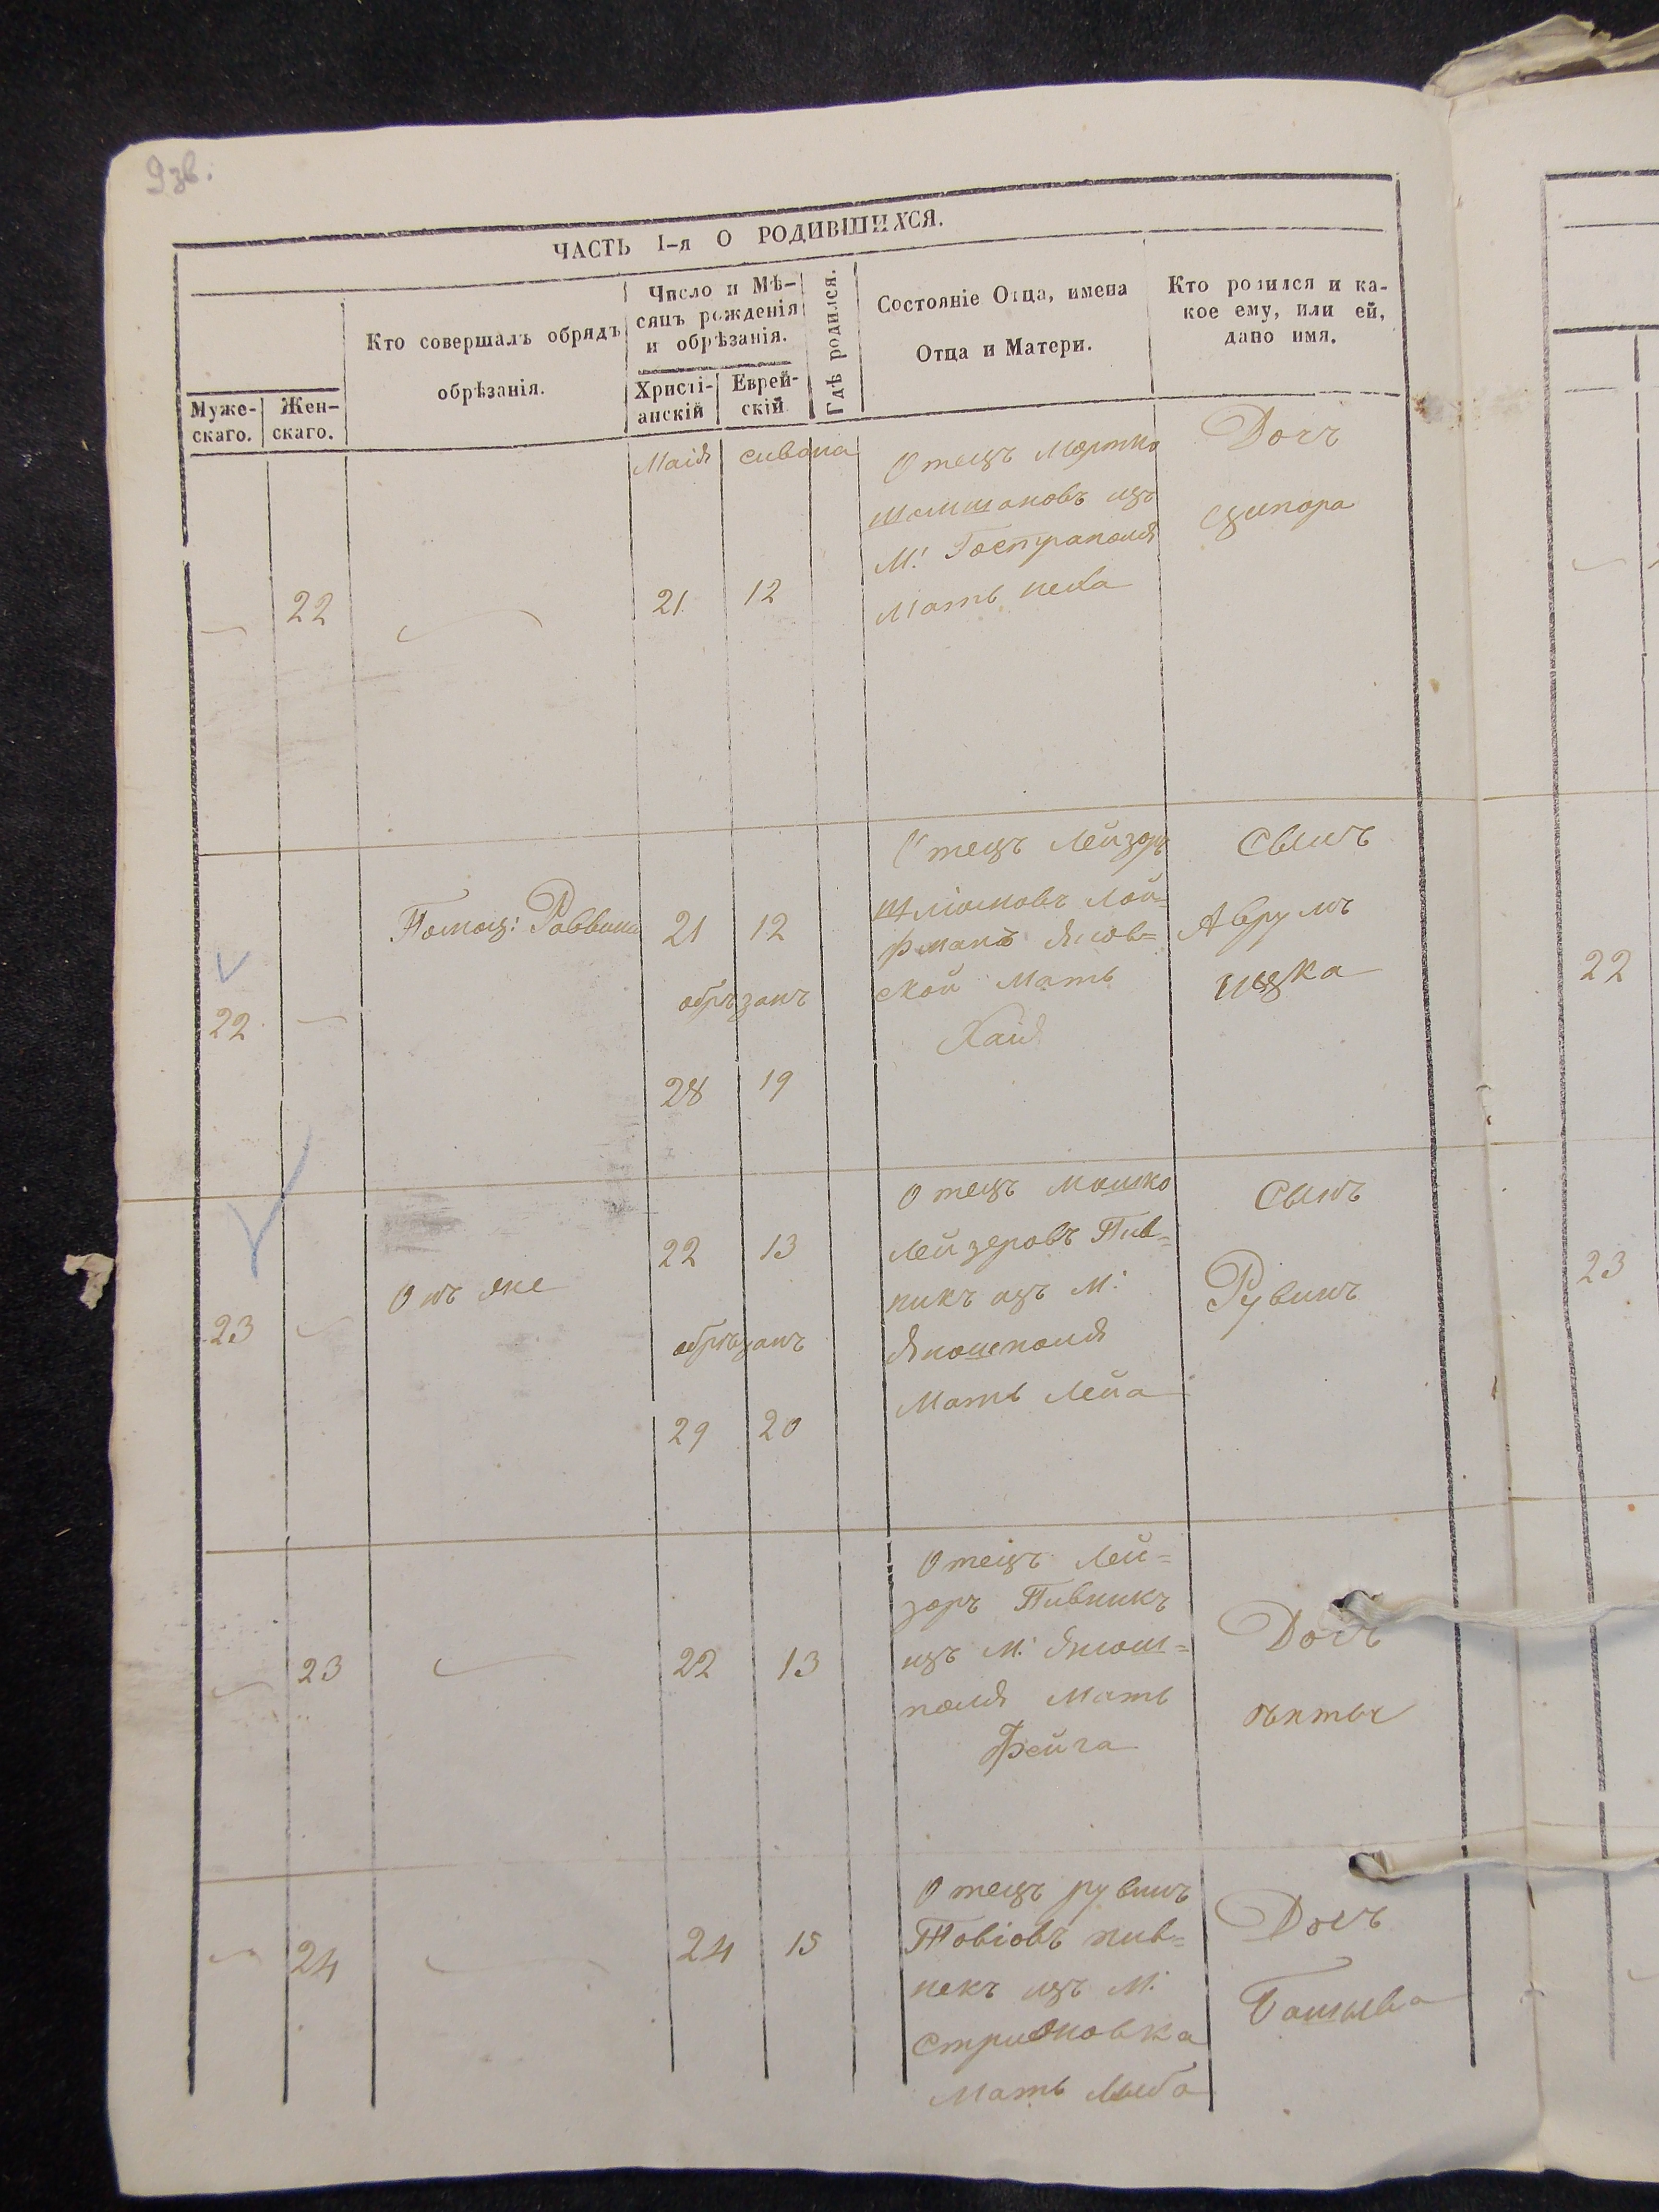 9зв.
ЧАСТЬ I-я О РОДИВШИХСЯ.
Муже-
скаго.
Жен-
скаго.
Кто совершалъ обрядъ
обрѣзанія.
Число и Мѣ-
сяцъ рожденія
и обрѣзанія.
Христі-
анскій
Еврей-
скій
Гдѣ родился.
Состояніе Отца, имена
Отца и Матери.
Кто родился и ка-
кое ему, или ей,
дано имя.
Маія сивана
22
21 12
Отецъ Мортко
Шмшоновъ изъ
М:
Мать
Дочъ
Ципора
22
Помощ: Раввина
21 12
обрѣзанъ
28 19
Отецъ Лейзоръ
Шліомовъ Лой=
фманъ Янов=
ской Мать
Хаія
Сынъ
Аврумъ
ицка
23
Онъ же
22 13
обрѣзанъ
29 20
Отецъ Мошко
Лейзеровъ Пив=
никъ изъ М:
Яношполя
Мать Лейа
Сынъ
Рувинъ
23
22 13
Отецъ Лей=
зоръ Пивникъ
изъ М: Яиош=
поля Мать
Фейга
Дочъ
24
24 15
Отецъ рувинъ
Товіовъ пив=
некъ изъ М:
Стрижовка
Мать Лыба
Дочъ
Башыва
22
23